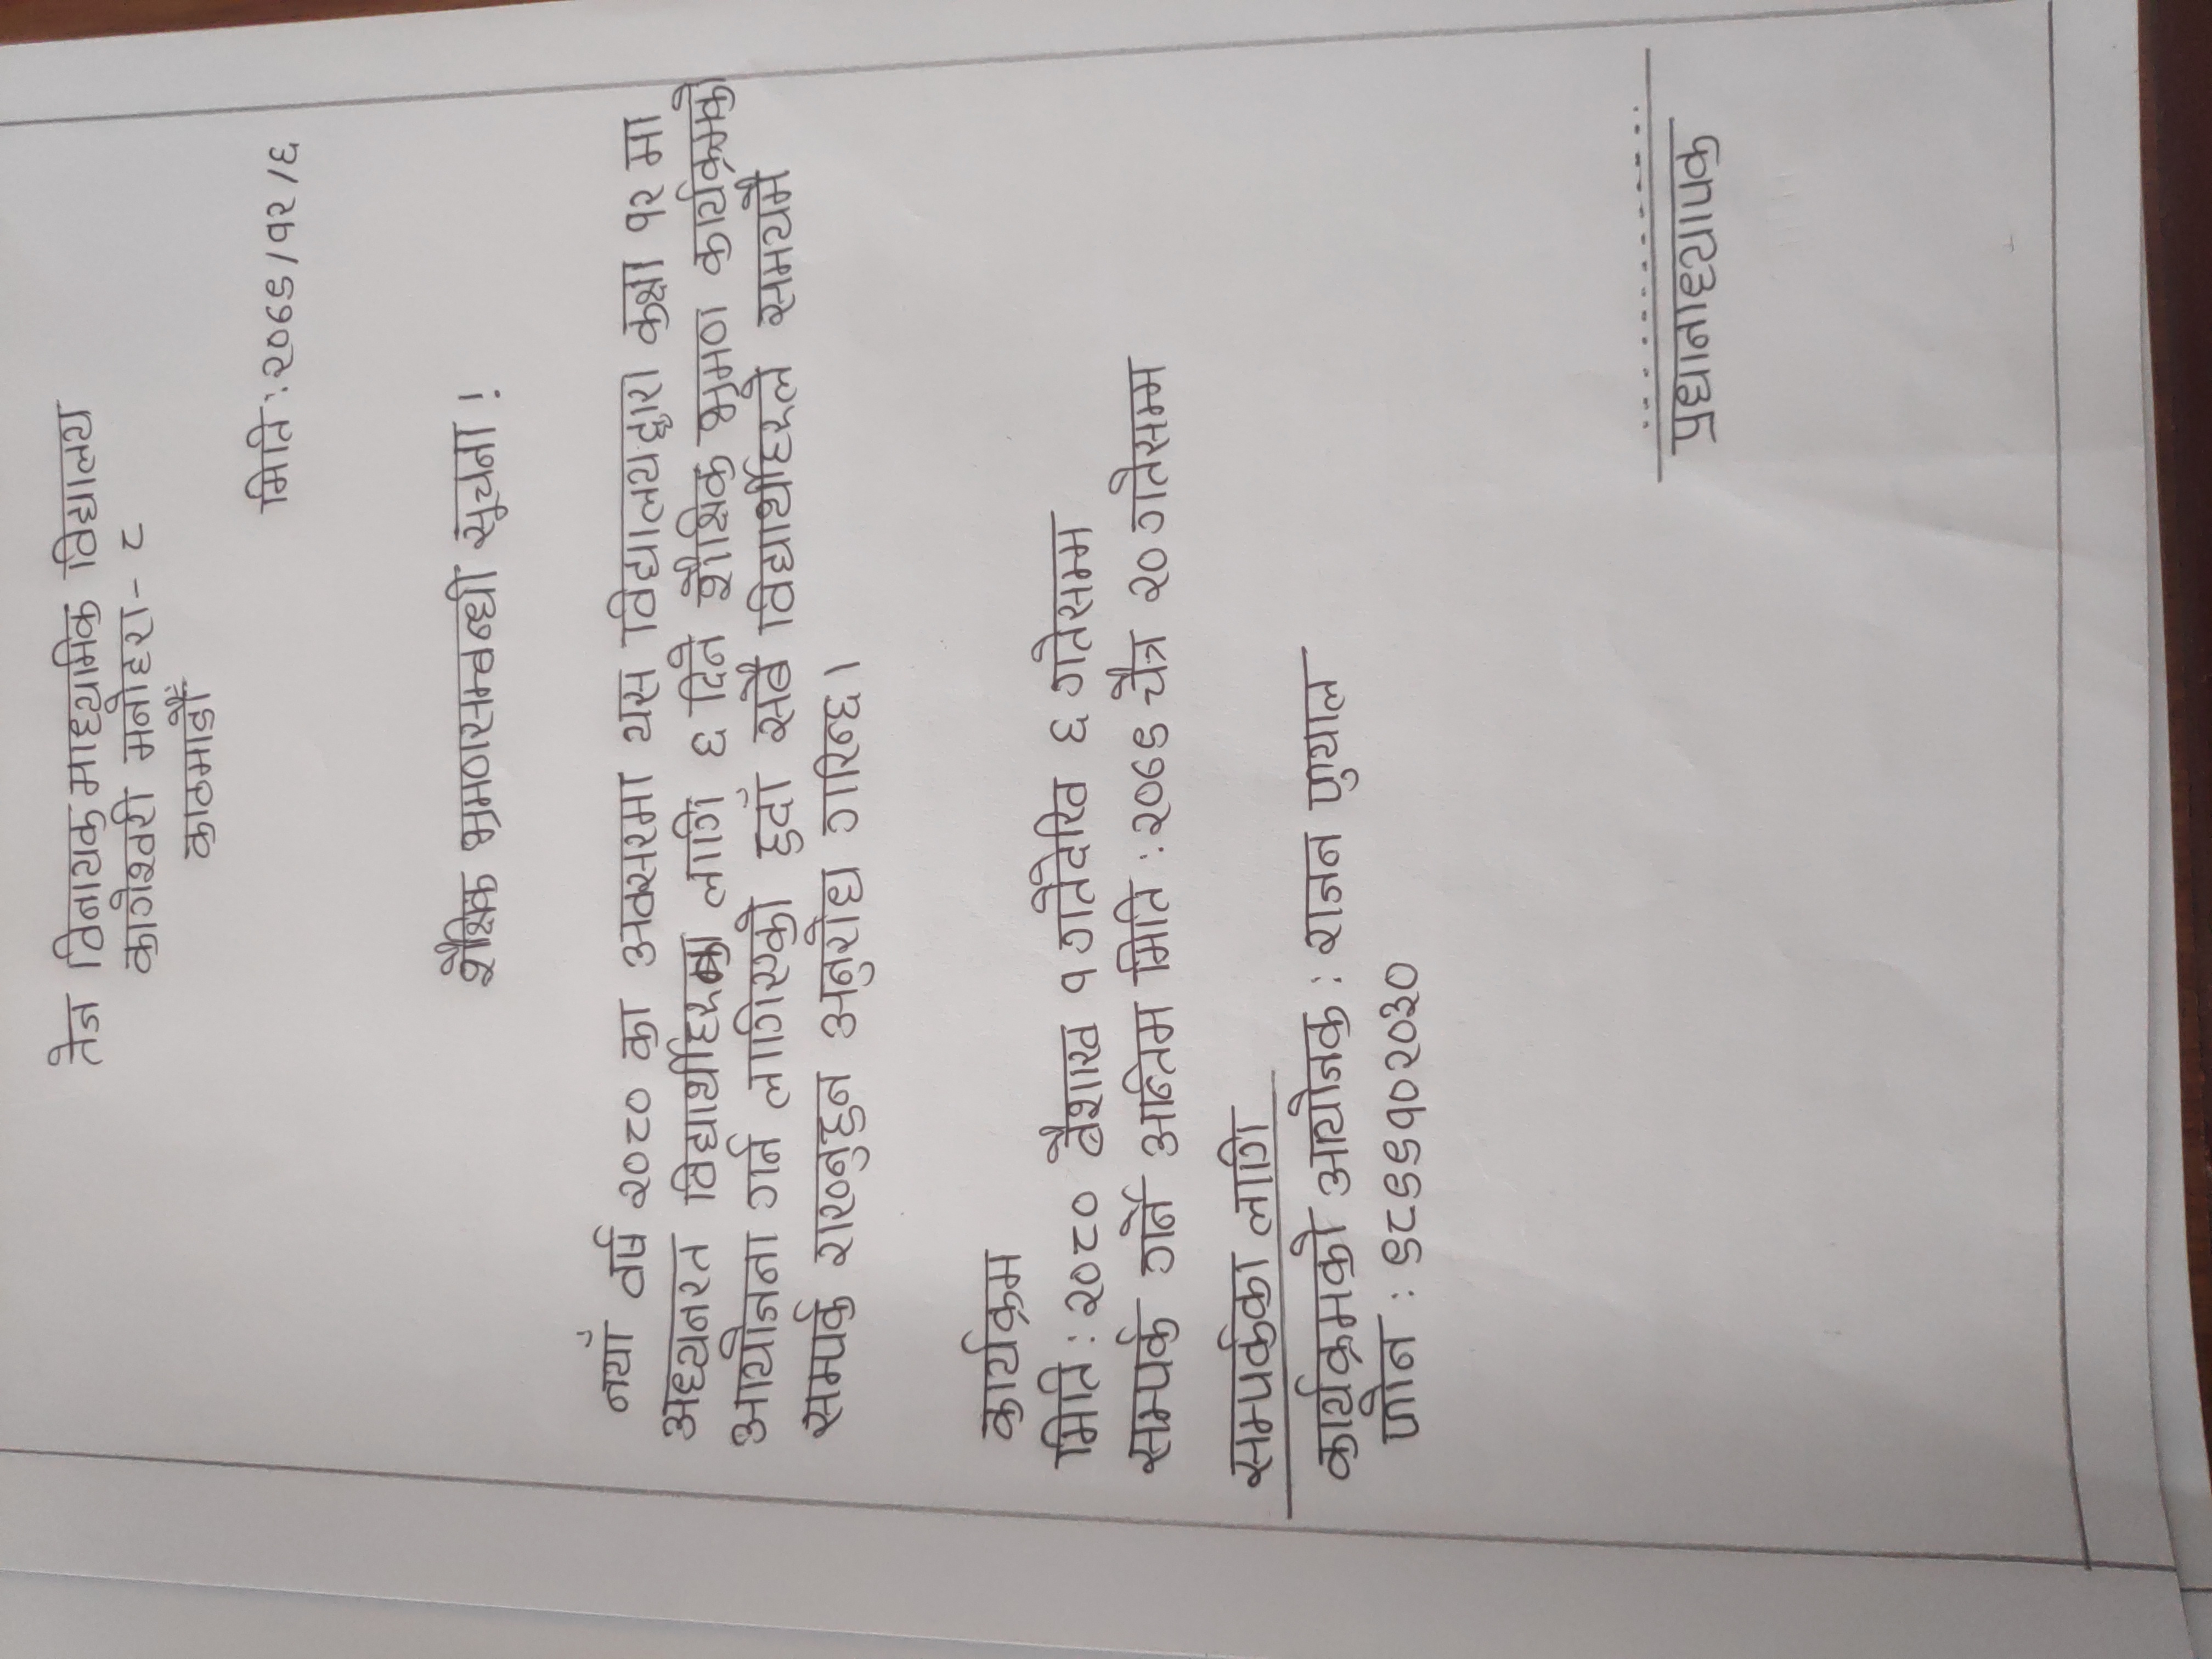 तेज विनायक माध्यामिक विद्यालय
कागेश्वरी मनोहरा - ८
काठमाडौँ
मिति : २०७९/१२/६
शैक्षिक भ्रमणसम्बन्धी सूचना !
नयाँ वर्ष २०८० का अवसरमा यस विद्यालयद्वारा कक्षा १२ मा
अध्यनरत विद्यार्थीहरूका लागि ६ दिने शैक्षिक भ्रमण कार्यक्रमको
आयोजना गर्न लागिएको हुदाँ सबै विद्यार्थीहरूले समयमै
सम्पर्क राख्नुहुन अनुरोध गरिन्छ।
कार्यक्रम
मिति : २०८० बैशाख १ गतेदेखि ६ गतेसम्म
सम्पर्क गर्ने अन्तिम मिति : २०७९ चैत्र २० गतेसम्म
सम्पर्कका लागि
कार्यक्रमको आयोजक : राजन फुयाल
फोन : ९८९९१०२०३०
प्रधानाध्यापक